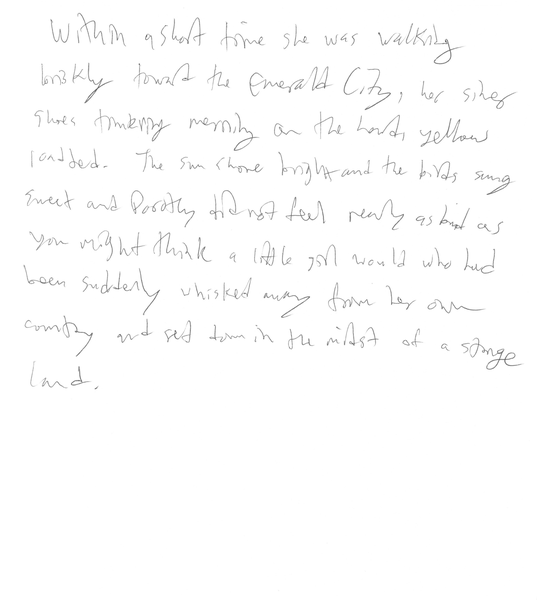 Within a short time she was walking
briskly toward the Emerald City, her silver
shoes tinkling merrily on the hard, yellow
roadbed. The sun shone bright and the birds sung
sweet and Dorothy did not feel nearly as bad as
you might think a little girl would who had
been suddenly whisked away from her own
country and set down in the midst of a strange
land.